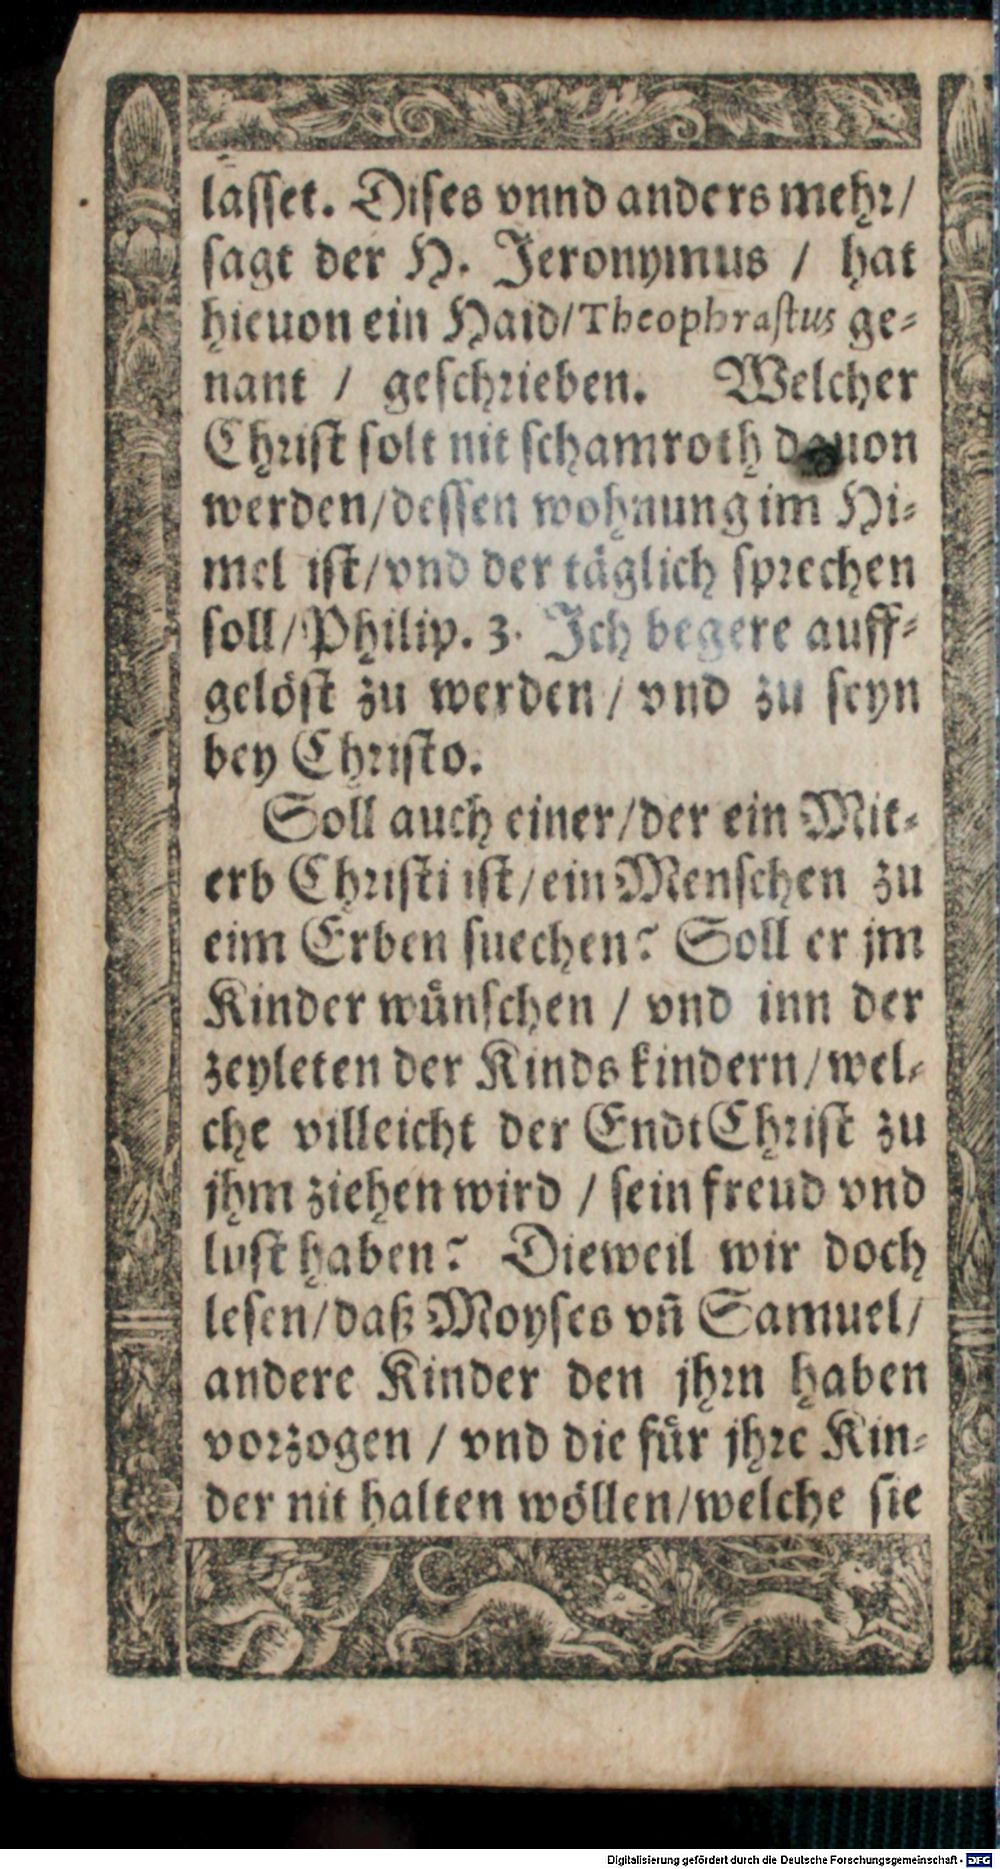 lasset. Dises vnnd anders mehr/
sagt der H. Jeronymus / hat
hieuon ein Haid/Theophrastus ge⸗
nant / geschrieben. Welcher
Christ solt nit schamroth dauon
werden/dessen wohnung im Hi⸗
mel ist/vnd der täglich sprechen
soll/Philip. 3. Ich begere auff⸗
gelöst zu werden / vnd zu seyn
bey Christo.
Soll auch einer/der ein Mit⸗
erb Christi ist/ein Menschen zu
eim Erben suechen? Soll er jm
Kinder wünschen / vnd inn der
zeyleten der Kindskindern/wel⸗
che villeicht der EndtChrist zu
jhm ziehen wird / sein freud vnd
lust haben? Dieweil wir doch
lesen/daß Moyses vñ Samuel/
andere Kinder den jhrn haben
vorzogen / vnd die für jhre Kin⸗
der nit halten wöllen/welche sie
Digitalisierung gefördert durch die Deutsche Forschungsgemeinschaft - DFG